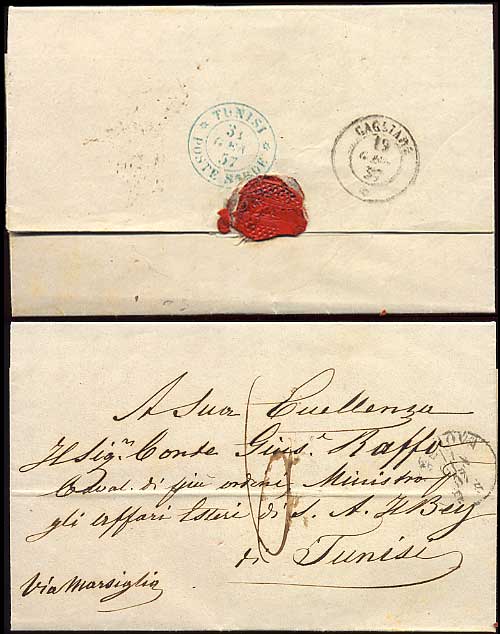 TUNISI
31
GEN
57
POSTE SARDE
CAGLIARI
19
GEN
57
A Sua Eccellenza
Il Sigr. Conte Gius.e Raffo
Caval. di più ordini Ministro p
gli affari Esteri di S. A. Il Bey
di Tunisi
Via Marsiglia